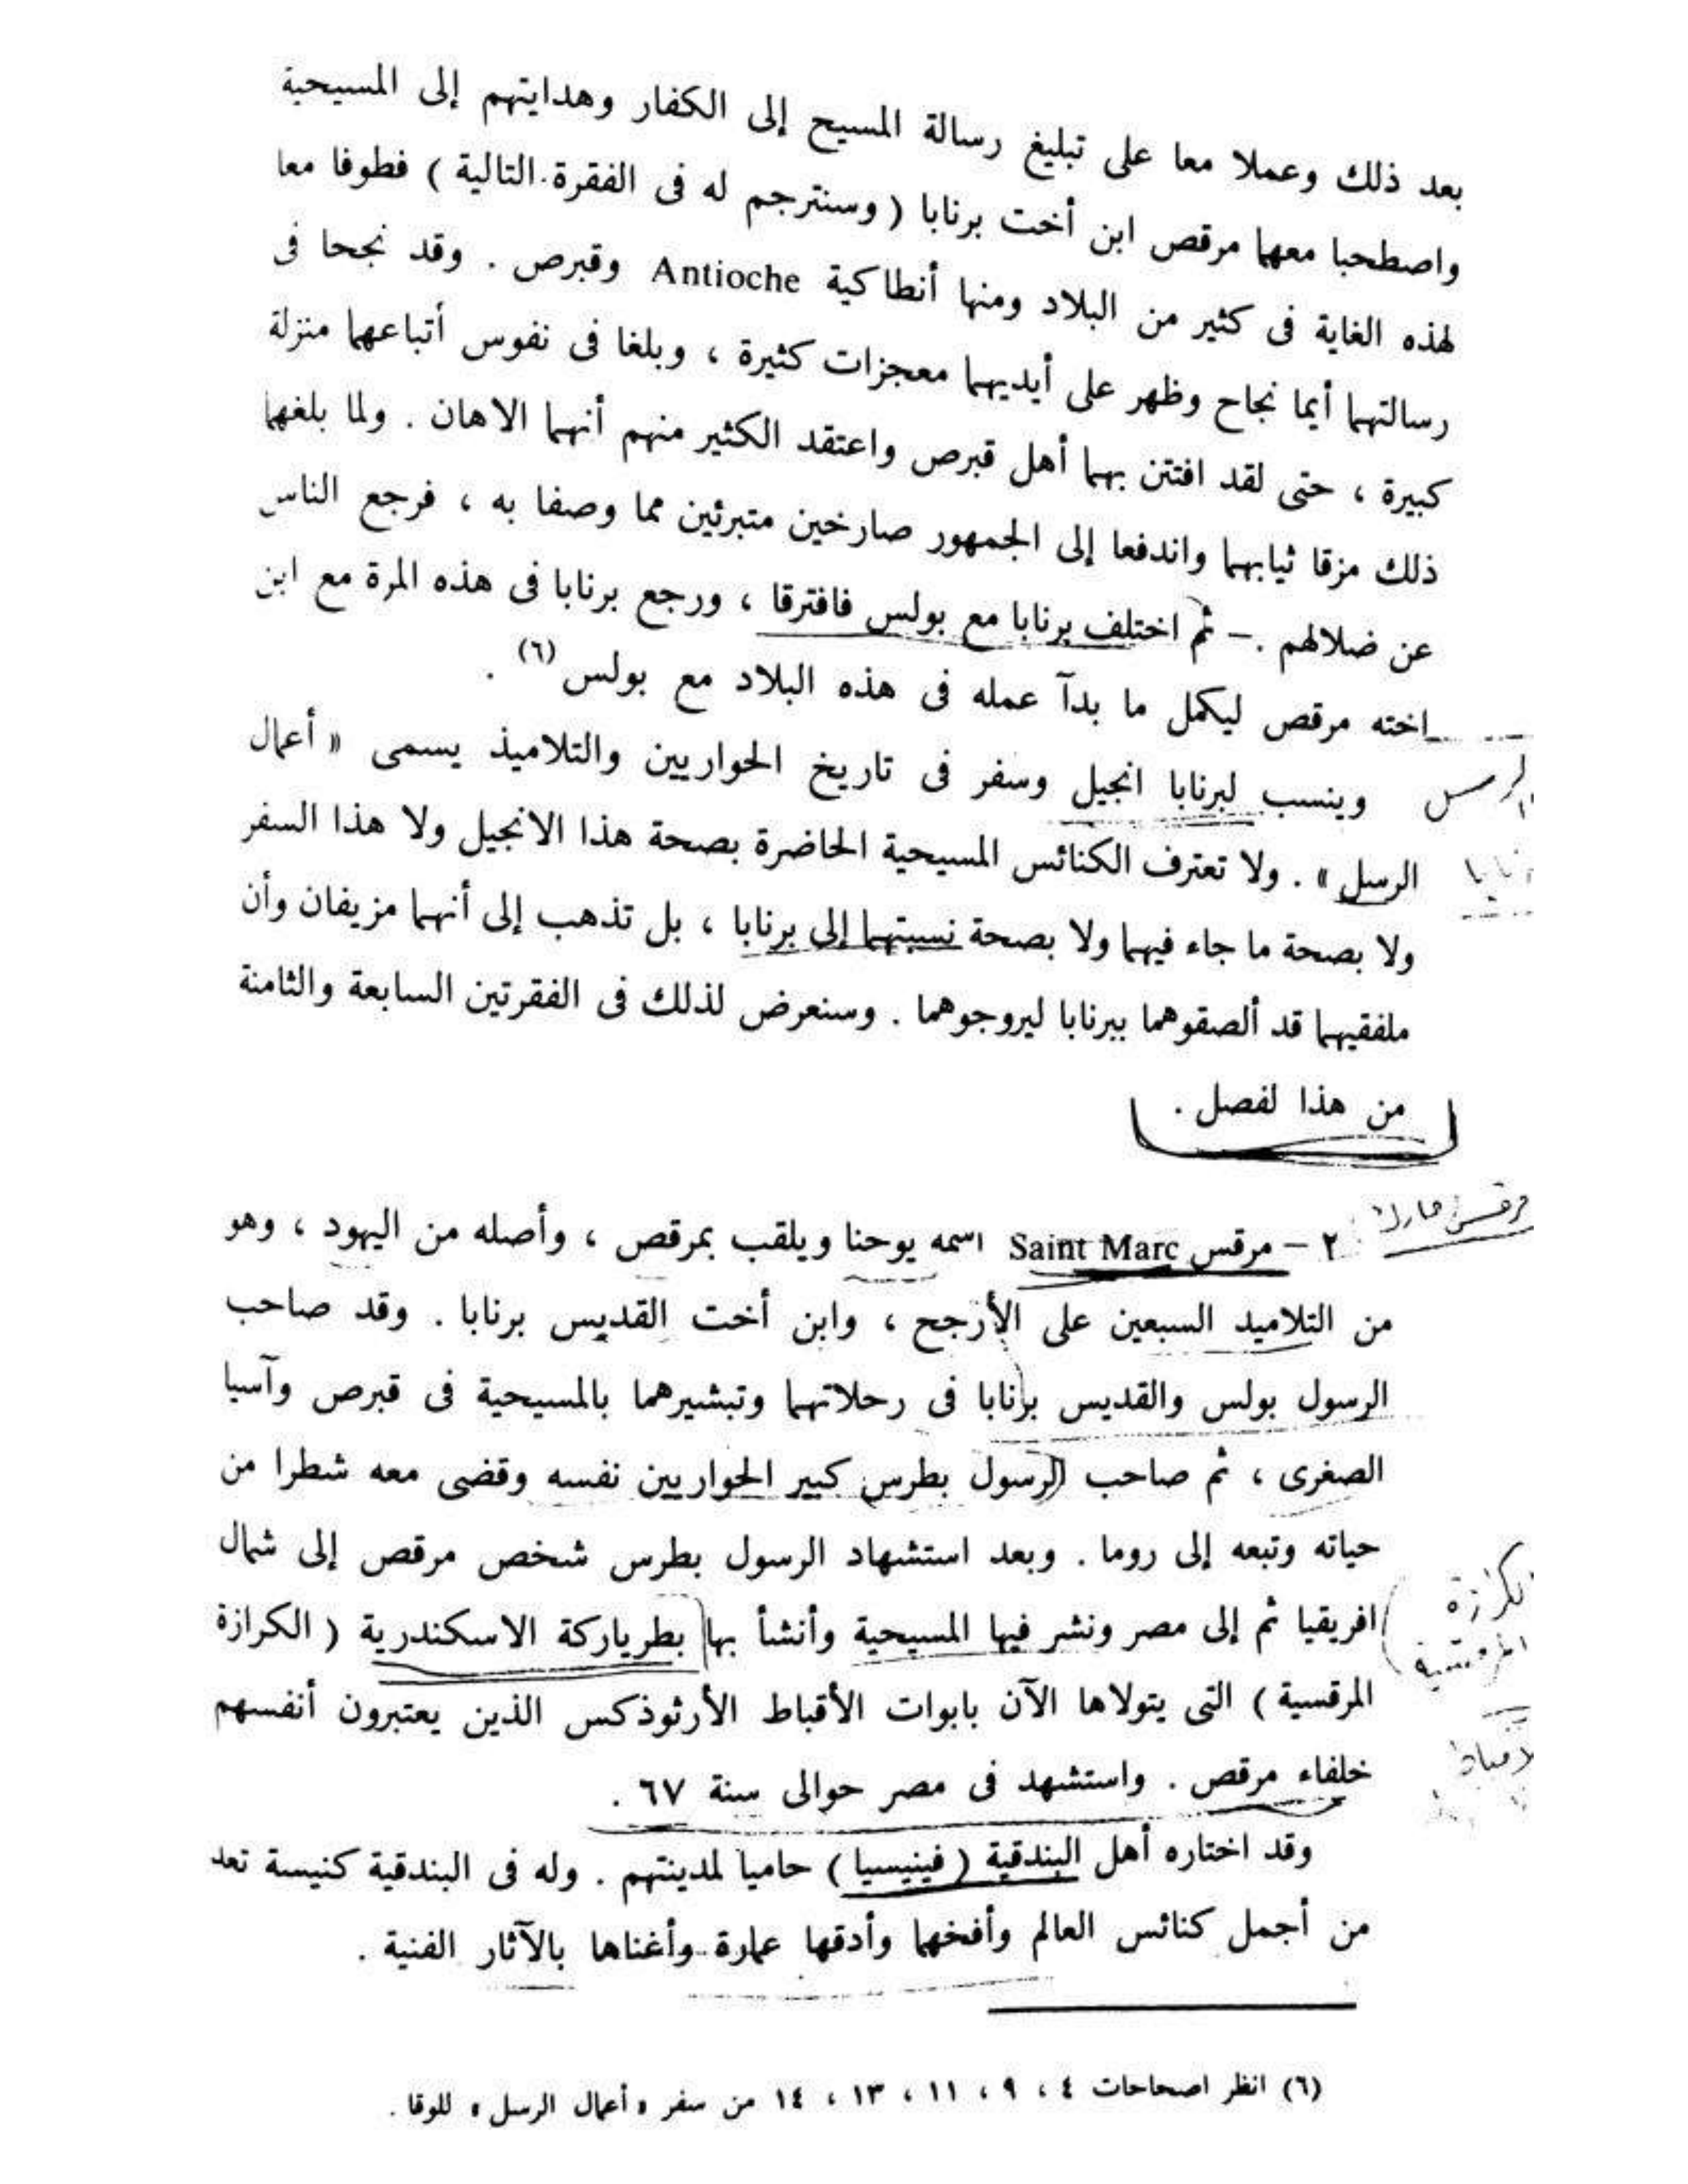 بعد ذلك وعملا معا على تبليغ رسالة المسيح إلى الكفار وهدايتهم إلى المسيحية
واصطحبا معهما مرقص ابن أخت برنابا ( وسنترجم له فى الفقرة التالية ) فطوفا معا
لهذه الغاية فى كثير من البلاد ومنها أنطاكية Antioche وقبرص . وقد نجحا فى
رسالتهما أيما نجاح وظهر على أيديهما معجزات كثيرة ، وبلغا فى نفوس أتباعهما منزلة
كبيرة ، حتى لقد افتتن بهما أهل قبرص واعتقد الكثير منهم أنهما الاهان . ولما بلغهما
ذلك مزقا ثيابهما واندفعا إلى الجمهور صارخين متبرئين مما وصفا به ، فرجع الناس
عن ضلالهم . – ثم اختلف برنابا مع بولس فافترقا ، ورجع برنابا فى هذه المرة مع ابن
اخته مرقص ليكمل ما بدآ عمله فى هذه البلاد مع بولس (٦) .
وينسب لبرنابا انجيل وسفر فى تاريخ الحواريين والتلاميذ يسمى « أعمال
الرسل » . ولا تعترف الكنائس المسيحية الحاضرة بصحة هذا الانجيل ولا هذا السفر
ولا بصحة ما جاء فيهما ولا بصحة نسبتهما إلى برنابا ، بل تذهب إلى أنهما مزيفان وأن
ملفقيهما قد ألصقوهما ببرنابا ليروجوهما . وسنعرض لذلك فى الفقرتين السابعة والثامنة
من هذا لفصل .
٢ – مرقس Saint Marc اسمه يوحنا ويلقب بمرقص ، وأصله من اليهود ، وهو
من التلاميد السبعين على الأرجح ، وابن أخت القديس برنابا . وقد صاحب
الرسول بولس والقديس برنابا فى رحلاتهما وتبشيرهما بالمسيحية فى قبرص وآسيا
الصغرى ، ثم صاحب الرسول بطرس كبير الحواريين نفسه وقضى معه شطرا من
حياته وتبعه إلى روما . وبعد استشهاد الرسول بطرس شخص مرقص إلى شمال
افريقيا ثم إلى مصر ونشر فيها المسيحية وأنشأ بها بطرياركة الاسكندرية ( الكرازة
المرقسية ) التى يتولاها الآن بابوات الأقباط الأرثوذكس الذين يعتبرون أنفسهم
خلفاء مرقص . واستشهد فى مصر حوالى سنة ٦٧ .
وقد اختاره أهل البندقية ( فينيسيا ) حاميا لمدينتهم . وله فى البندقية كنيسة تعد
من أجمل كنائس العالم وأفخهما وأدقها عمارة وأغناها بالآثار الفنية .
(٦) انظر اصحاحات ٤ ، ٩ ، ١١ ، ١٣ ، ١٤ من سفر « أعمال الرسل » للوقا .